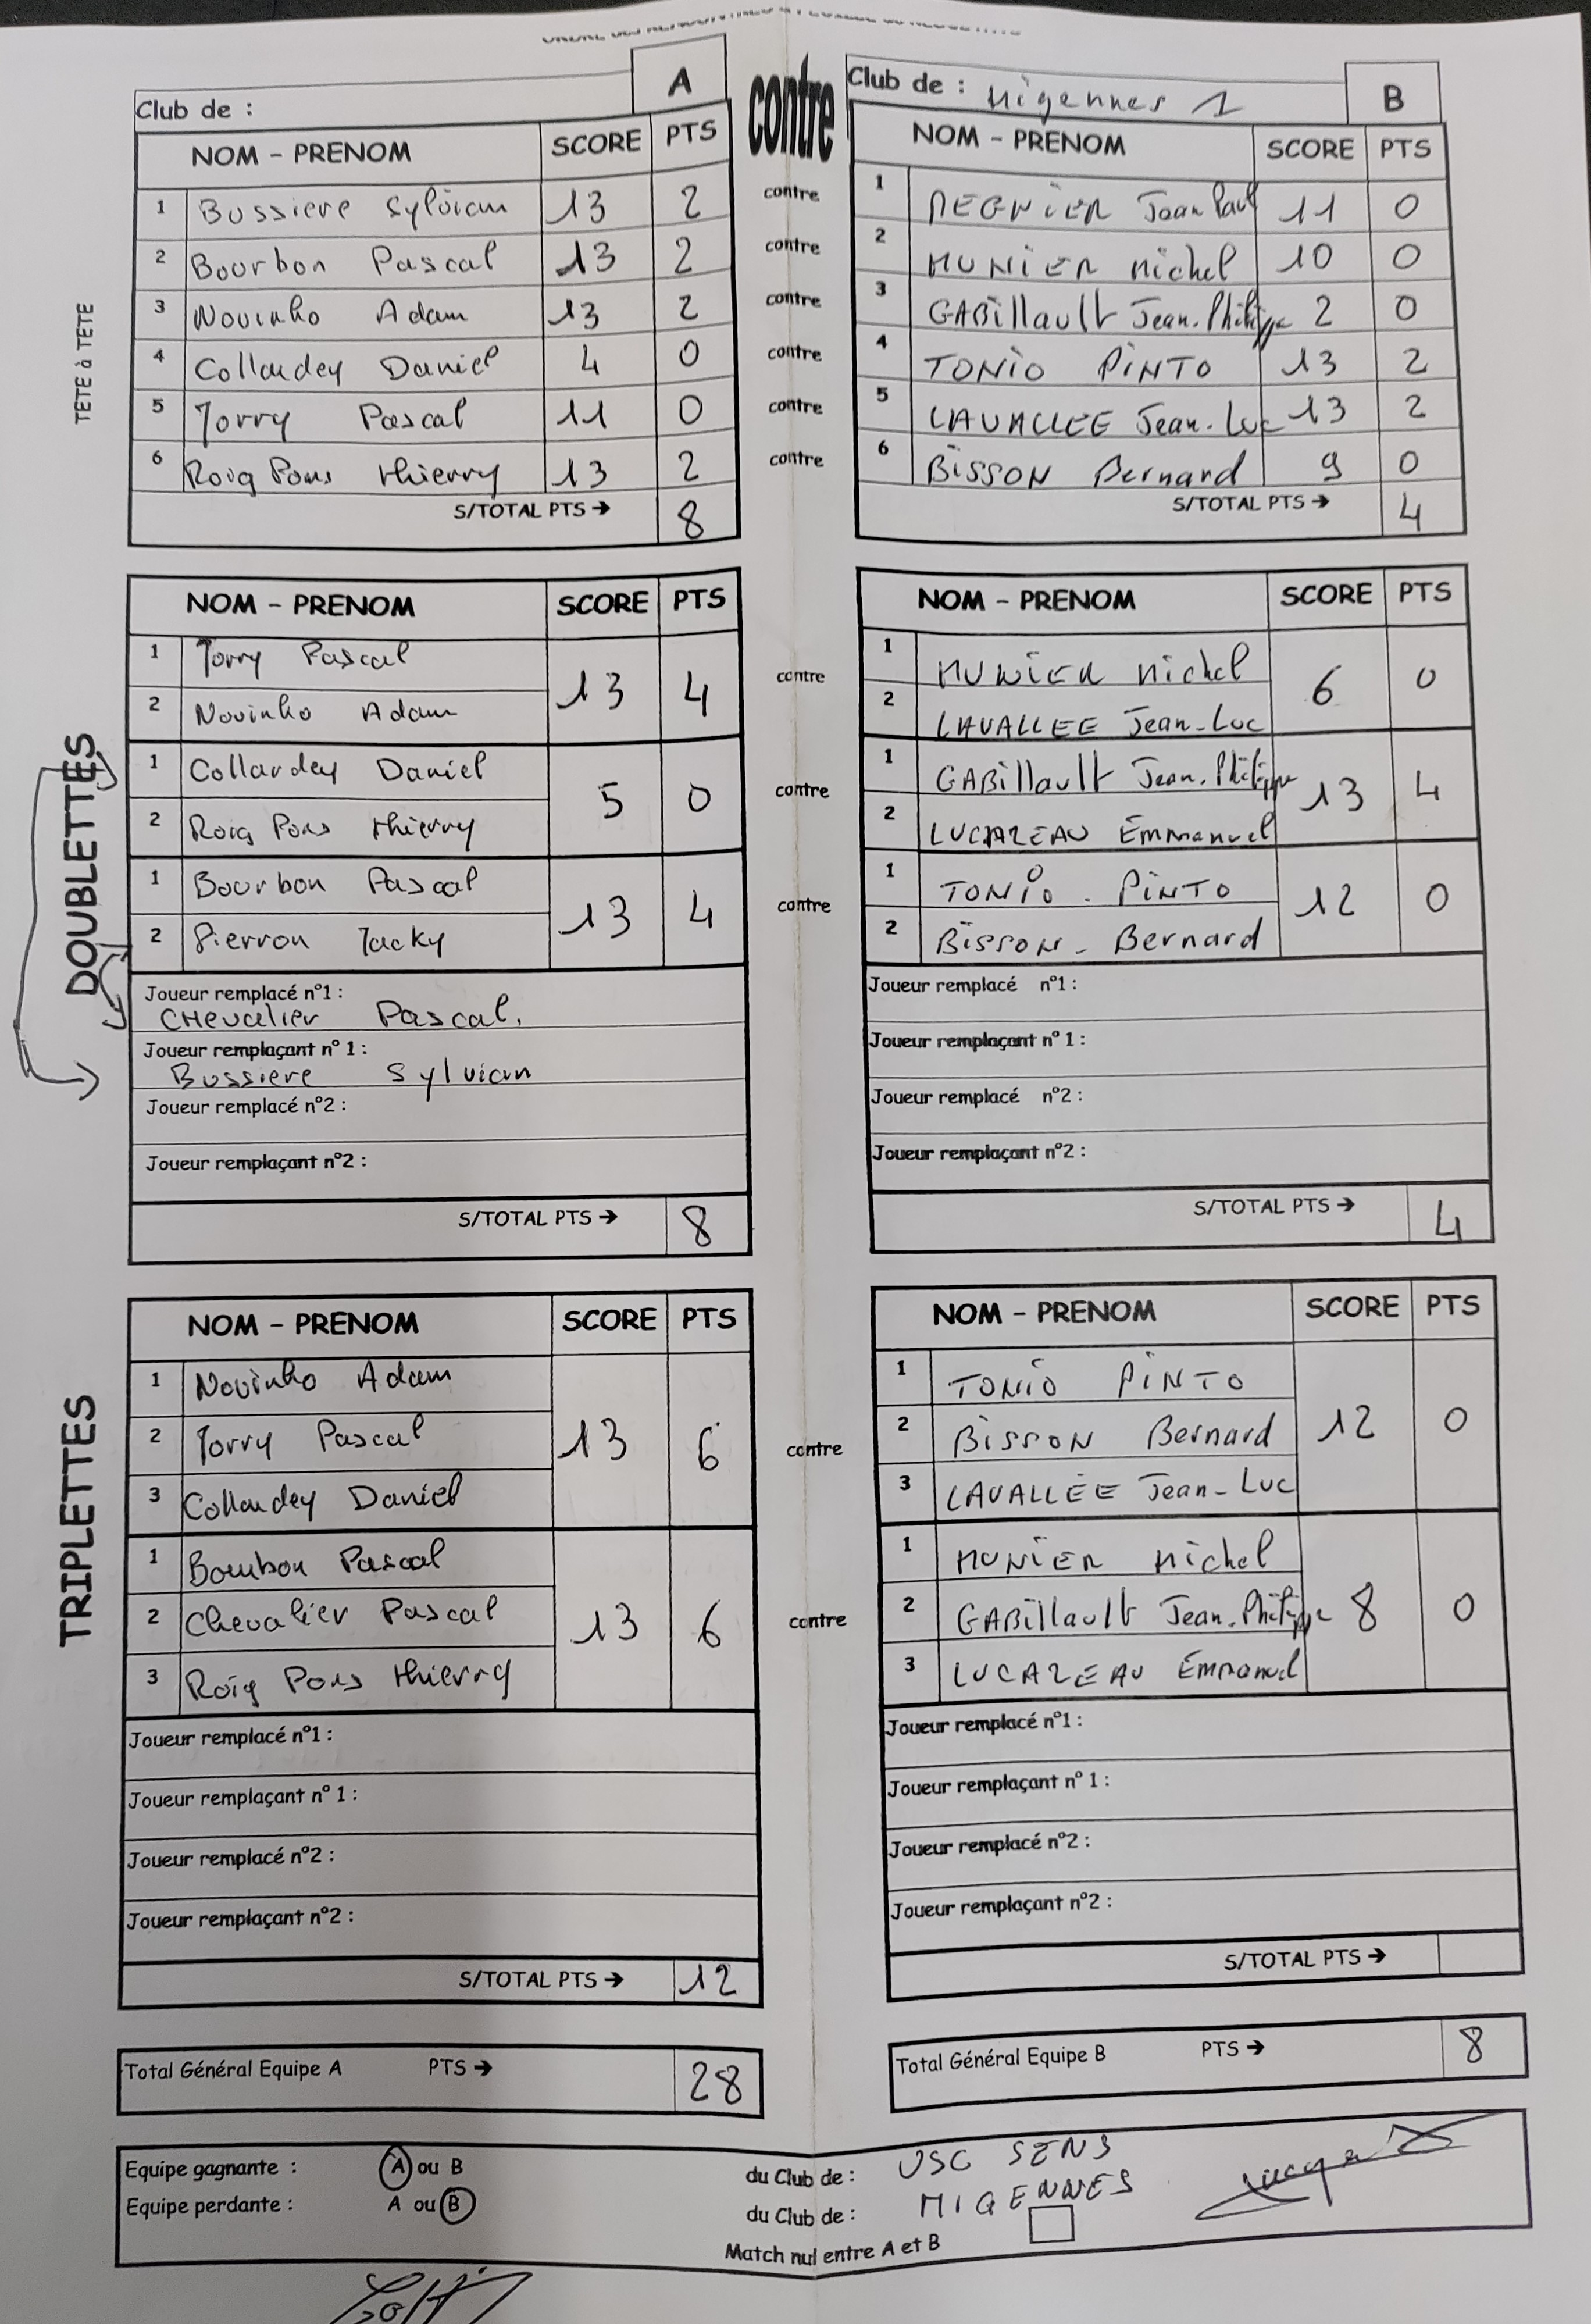 Club de :
A
contre
Club de : Migennes 1
B
NOM – PRENOM SCORE PTS
NOM – PRENOM SCORE PTS
TETE à TETE
1 Bussiere Sylvian 13 2 contre 1 REGNIER Jean Paul 11 0
2 Bourbon Pascal 13 2 contre 2 MUNIER Michel 10 0
3 Novinho Adam 13 2 contre 3 GABillault Jean-Philippe 2 0
4 Collardey Daniel 4 0 contre 4 TONIO PINTO 13 2
5 Jorry Pascal 11 0 contre 5 LAVALLEE Jean-Luc 13 2
6 Roig Pons thierry 13 2 contre 6 BISSON Bernard 9 0
S/TOTAL PTS → 8
S/TOTAL PTS → 4
DOUBLETTES
NOM – PRENOM SCORE PTS
1 Jorry Pascal
2 Novinho Adam
13 4
1 Collardey Daniel
2 Roig Pons thierry
5 0
1 Bourbon Pascal
2 Pierron Jacky
13 4
Joueur remplacé n°1 :
CHevalier Pascal.
Joueur remplaçant n° 1 :
Bussiere Sylvian
Joueur remplacé n°2 :
Joueur remplaçant n°2 :
S/TOTAL PTS → 8
contre
contre
contre
NOM – PRENOM SCORE PTS
1 MUNIER Michel
2 LAVALLEE Jean-Luc
6 0
1 GABillault Jean-Philippe
2 LUCAZEAU Emmanuel
13 4
1 TONIO PINTO
2 BISSON - Bernard
12 0
Joueur remplacé n°1 :
Joueur remplaçant n° 1 :
Joueur remplacé n°2 :
Joueur remplaçant n°2 :
S/TOTAL PTS → 4
TRIPLETTES
NOM – PRENOM SCORE PTS
1 Novinho Adam
2 Jorry Pascal
3 Collardey Daniel
13 6
1 Bourbon Pascal
2 Chevalier Pascal
3 Roig Pons thierry
13 6
Joueur remplacé n°1 :
Joueur remplaçant n° 1 :
Joueur remplacé n°2 :
Joueur remplaçant n°2 :
S/TOTAL PTS → 12
contre
contre
NOM – PRENOM SCORE PTS
1 TONIO PINTO
2 BISSON Bernard
3 LAVALLÉE Jean-Luc
12 0
1 MUNIER Michel
2 GABillault Jean-Philippe
3 LUCAZEAU Emmanuel
8 0
Joueur remplacé n°1 :
Joueur remplaçant n° 1 :
Joueur remplacé n°2 :
Joueur remplaçant n°2 :
S/TOTAL PTS →
Total Général Equipe A PTS → 28
Total Général Equipe B PTS → 8
Equipe gagnante : A ou B du Club de : USC SENS
Equipe perdante : A ou B du Club de : MIGENNES
Match nul entre A et B